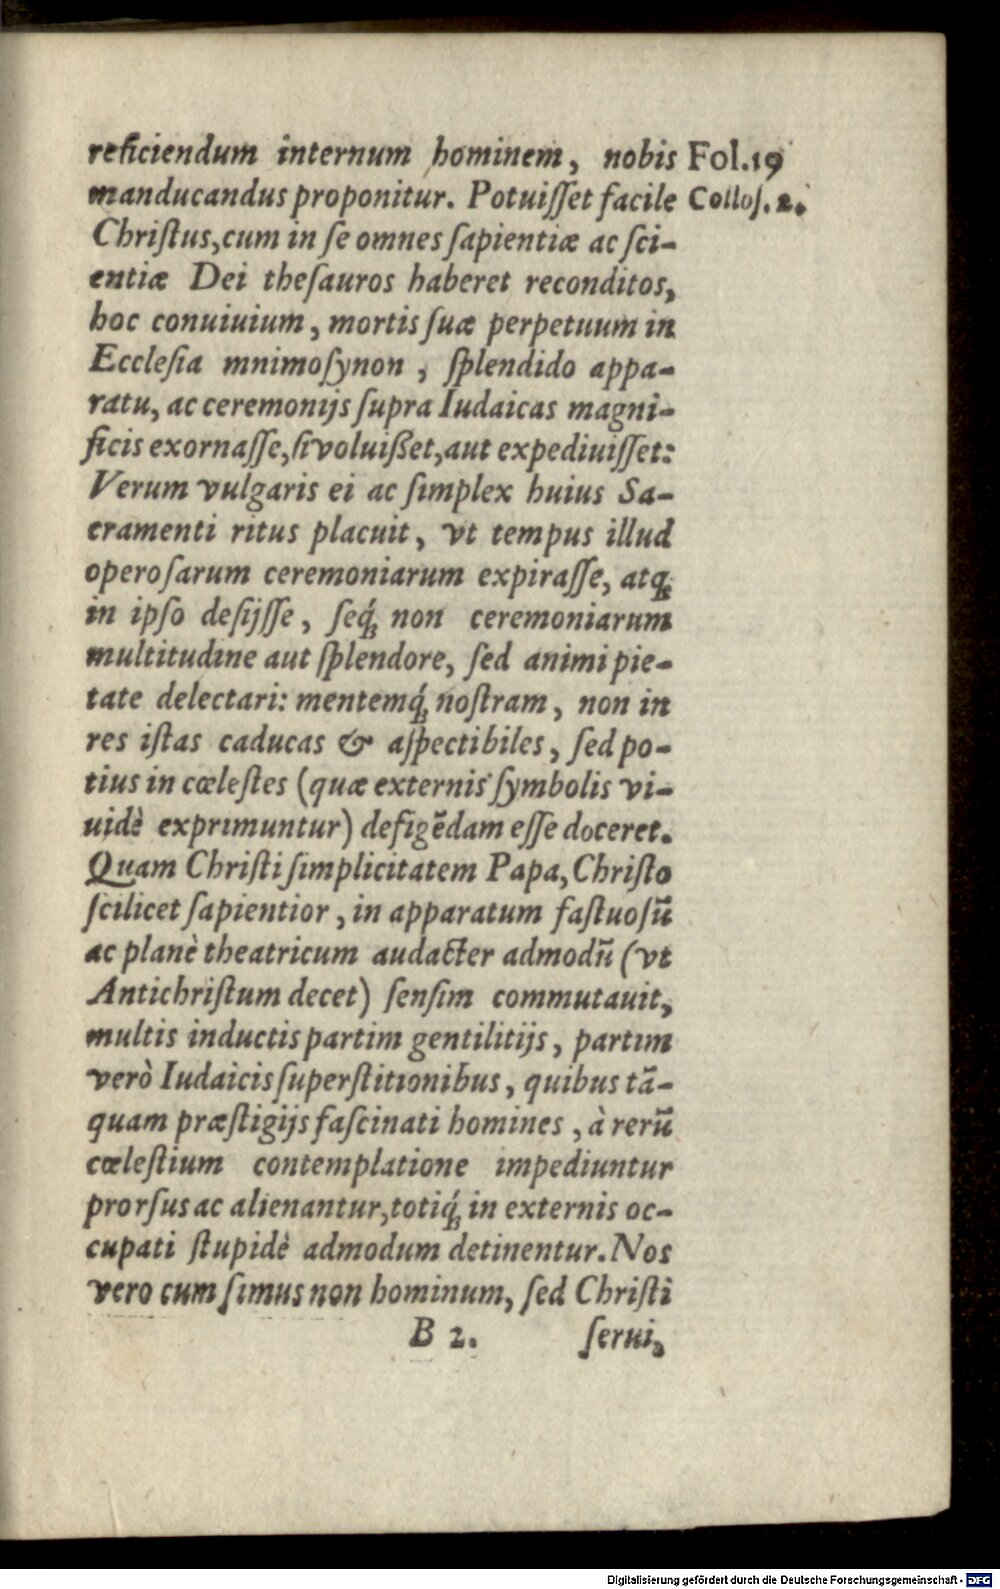 reficiendum internum hominem, nobis Fol.19
manducandus proponitur. Potuiſſet facile Colloſ. 2.
Chriſtus, cum in ſe omnes ſapientiæ ac ſci-
entiæ Dei theſauros haberet reconditos,
hoc conuiuium, mortis ſuæ perpetuum in
Eccleſia mnimoſynon, ſplendido appa-
ratu, ac ceremonijs ſupra Iudaicas magni-
ficis exornaſſe, ſi voluißet, aut expediuiſſet:
Verum vulgaris ei ac ſimplex huius Sa-
cramenti ritus placuit, vt tempus illud
operoſarum ceremoniarum expiraſſe, atq;
in ipſo deſijſſe, ſeq́; non ceremoniarum
multitudine aut ſplendore, ſed animi pie-
tate delectari: mentemq́; noſtram, non in
res iſtas caducas & aſpectibiles, ſed po-
tius in cœleſtes (quæ externis ſymbolis vi-
uidè exprimuntur) defigēdam eſſe doceret.
Quam Chriſti ſimplicitatem Papa, Chriſto
ſcilicet ſapientior, in apparatum faſtuoſū
ac planè theatricum audacter admodū (vt
Antichriſtum decet) ſenſim commutauit,
multis inductis partim gentilitijs, partim
verò Iudaicis ſuperſtitionibus, quibus tā-
quam præſtigijs faſcinati homines, à rerū
cœleſtium contemplatione impediuntur
prorſus ac alienantur, totiq́; in externis oc-
cupati ſtupidè admodum detinentur. Nos
vero cum ſimus non hominum, ſed Chriſti
B 2. ſerui,
Digitalisierung gefördert durch die Deutsche Forschungsgemeinschaft - DFG